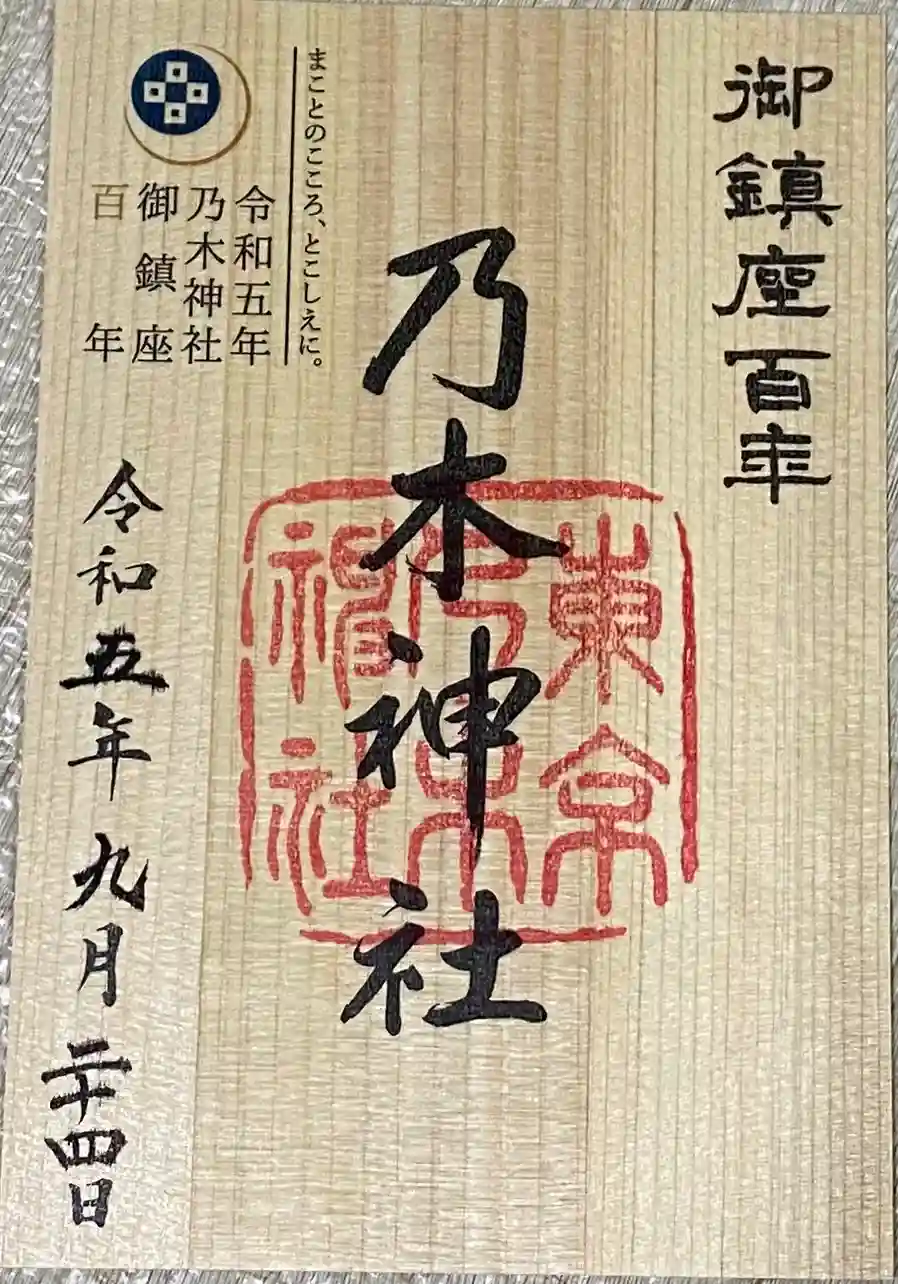 御鎮座百年
乃木神社
東京
乃木
神社
まことのこころ、とこしえに。
令和五年
乃木神社
御鎮座
百年
令和五年九月二十四日